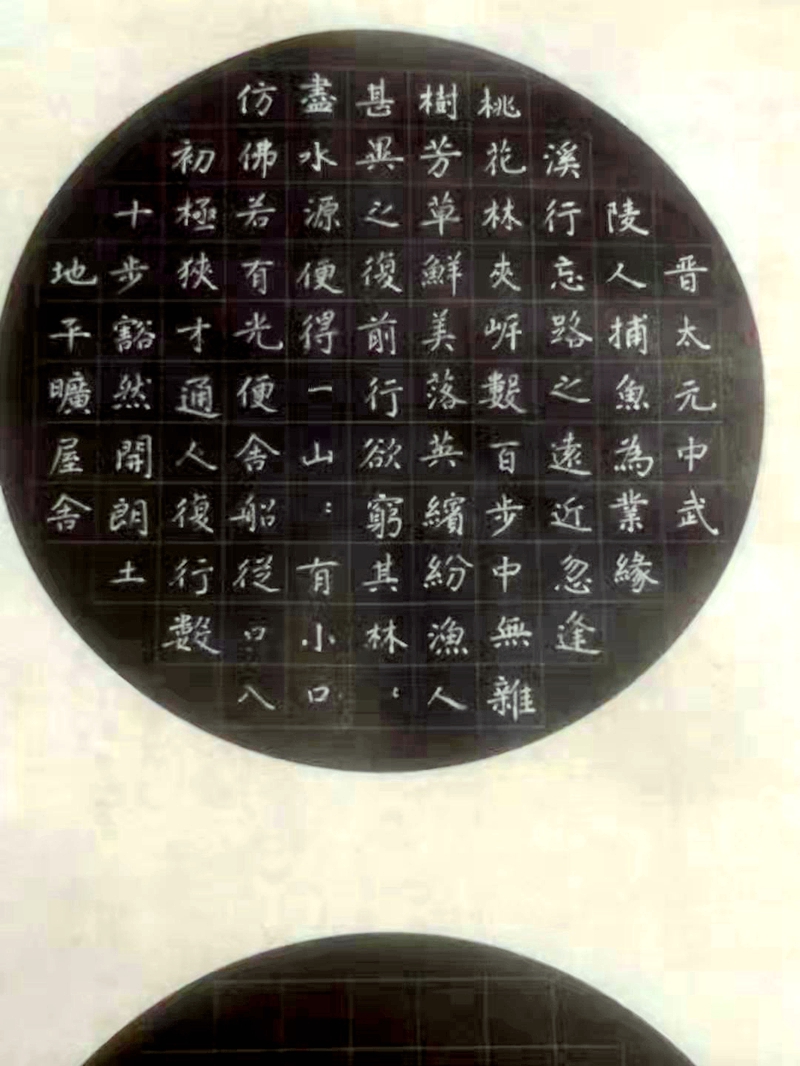 晋太元中武
陵人捕魚為業緣
溪行忘路之遠近忽逢
桃花林夾岸數百步中無雜
樹芳草鮮美落英繽紛漁人
甚異之復前行欲窮其林〻
盡水源便得一山〻有小口
仿佛若有光便舍船從口入
初極狹才通人復行數
十步豁然開朗土
地平曠屋舍